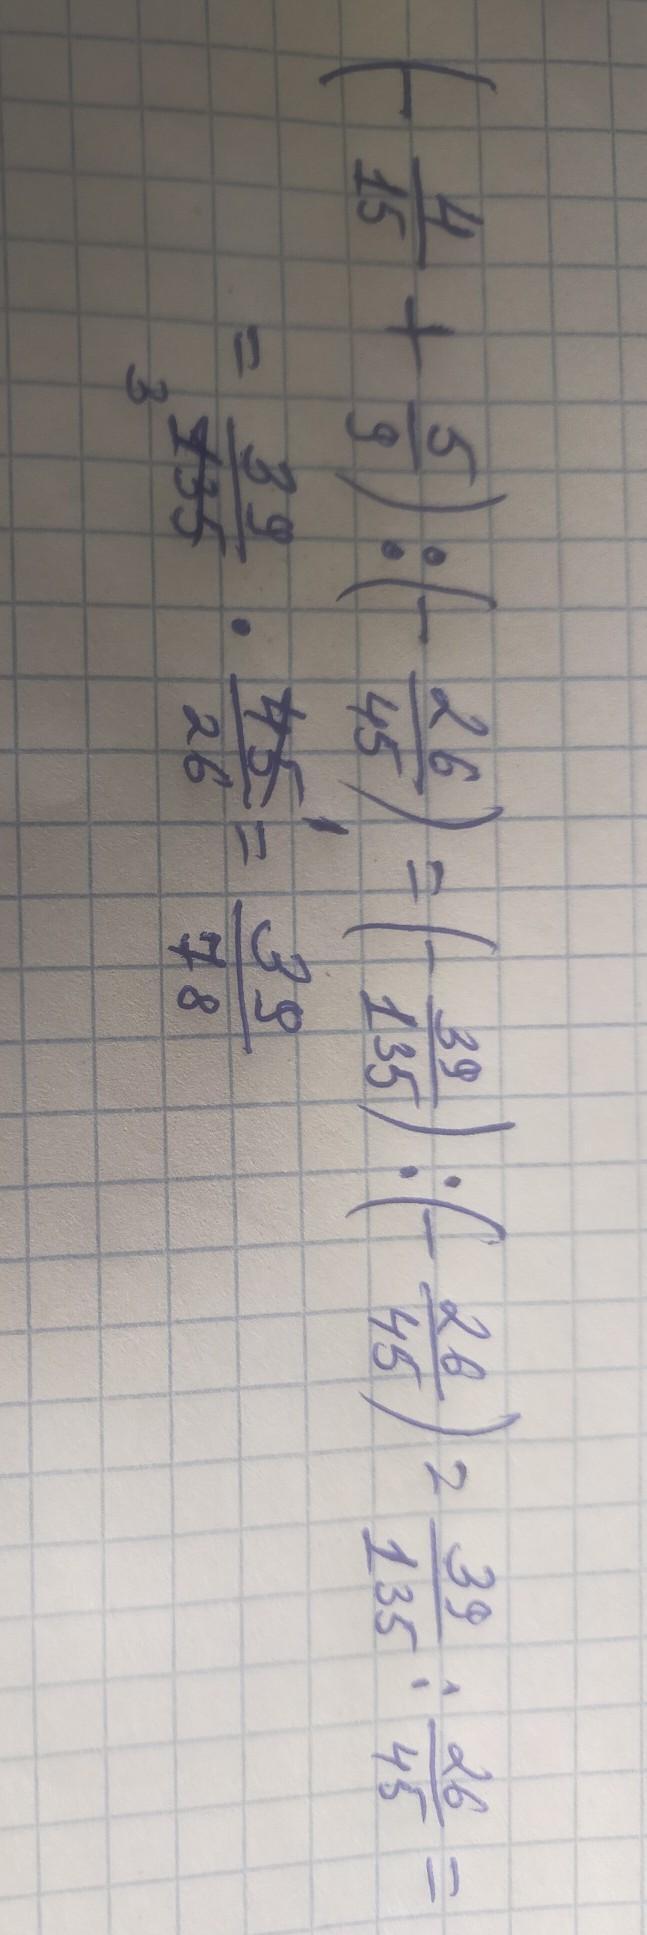 (- 4/15 + 5/9) : (- 26/45) = (- 39/135) : (- 26/45) = 39/135 : 26/45 =
= 39/135 3 · 45/26 1 = 39/78